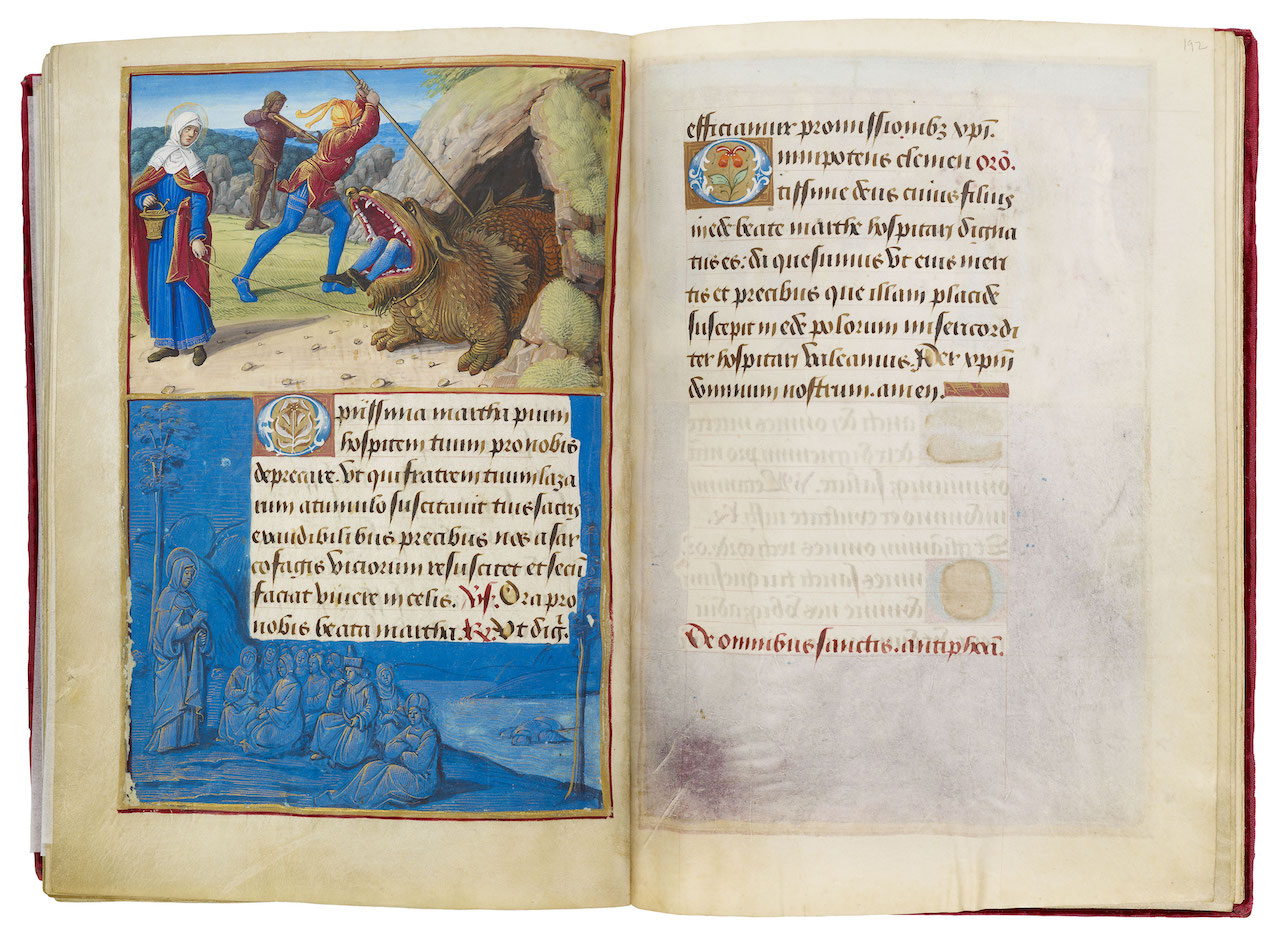 O piissima martha pium
hospitem tuum pro nobis
deprecare. Vt qui fratrem tuum laza
rum a tumulo suscitauit tuis sacris
exaudibilibus precibus nos a sar
cofagis viciorum resuscitet et secū
faciat viuere in celis. Vs. Ora pro
nobis beata martha. R. Vt dig.
192
efficiamur promissionibꝫ xp̄i.
Omnipotens clemen orō.
tissime deus cuius filius
in ede beate marthe hospitari digna
tus es: da quesumus vt eius meri
tis et precibus que illam placide
suscepit in ede polorum misericordi
ter hospitari valeamus. Per xp̄m
dominum nostrum. amen.
De omnibus sanctis. antiphona.